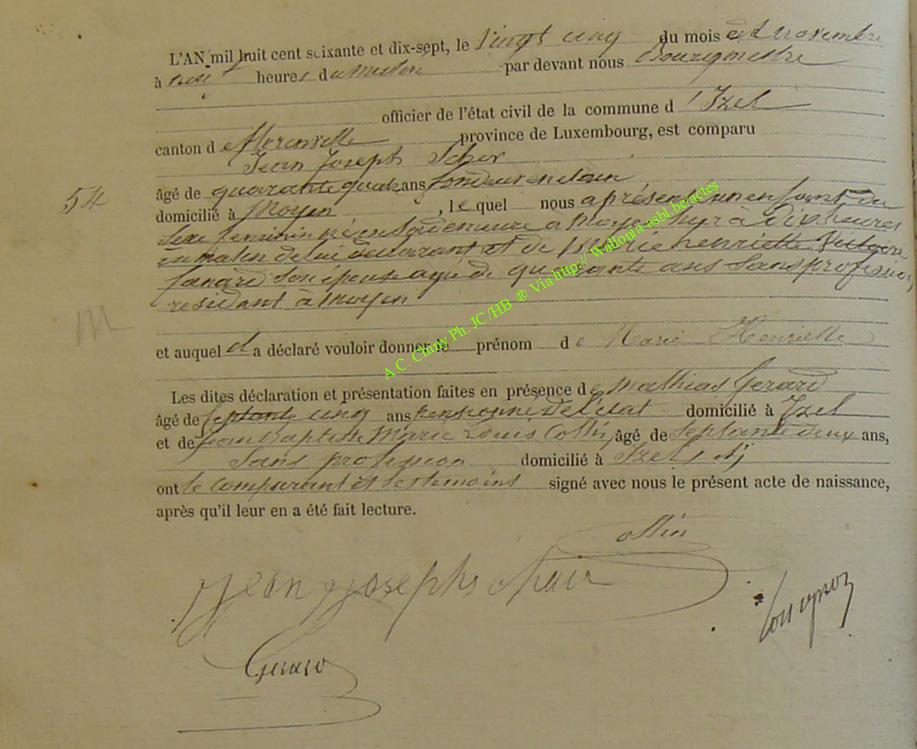 L'AN mil huit cent soixante et dix-sept, le Vingt cinq du mois de novembre
à heures du matin par devant nous Bourgmestre
officier de l'état civil de la commune d'Izel
canton de province de Luxembourg, est comparu
Jean Joseph
54
âgé de quarante ans
domicilié à Moyen, lequel nous a présenté un enfant du
sexe féminin né à Moyen à dix heures
du matin de lui déclarant et de henriette
son épouse agée de quarante ans Sans profession,
résidant à Moyen
M
et auquel il a déclaré vouloir donner prénom de Marie Henriette
Les dites déclaration et présentation faites en présence de Mathias Gerard
âgé de septante cinq ans pensionné de l'Etat domicilié à Izel
et de Jean Baptiste Marie Louis Collin, âgé de septante deux ans,
Sans profession domicilié à Izel
ont le comparant et les témoins signé avec nous le présent acte de naissance,
après qu'il leur en a été fait lecture.
Collin
Jean Joseph
Gerard
A.C. Chiny Ph. JC/HB ® Via http://Wallonia-asbl.be/actes